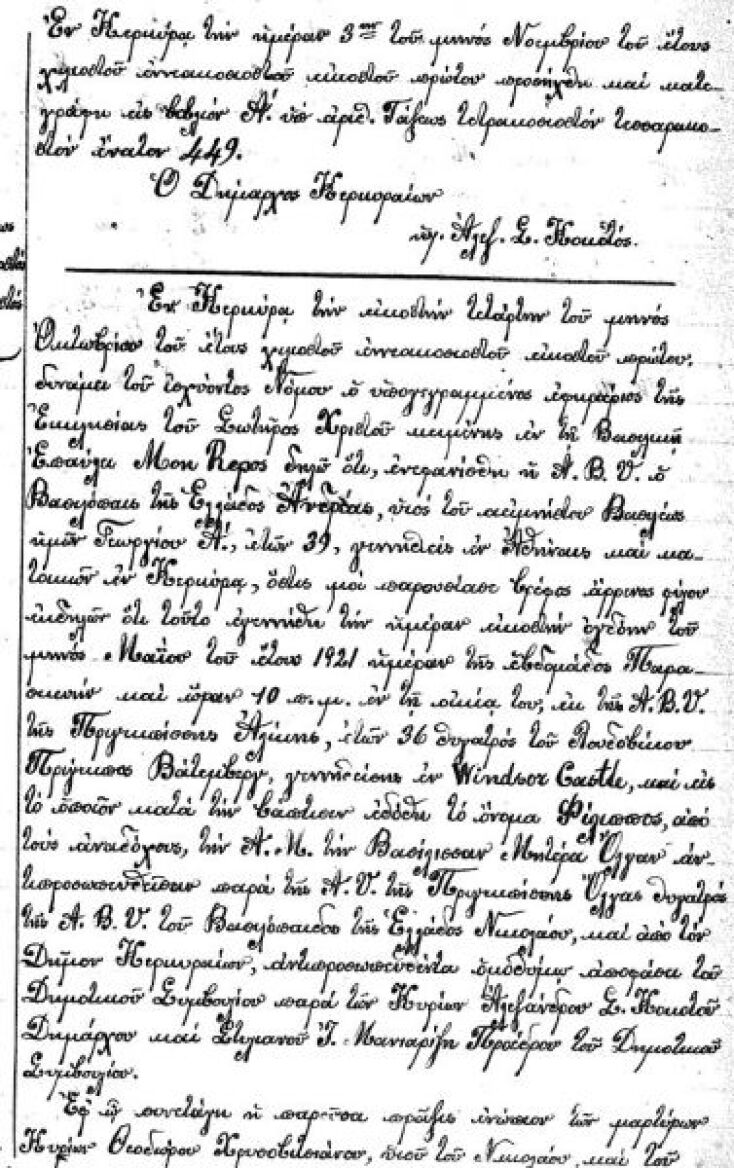 Ἐν Κερκύρᾳ τὴν ἡμέραν 3ην τοῦ μηνός Νοεμβρίου τοῦ ἔτους
χιλιοστοῦ ἐννεακοσιοστοῦ εἰκοστοῦ πρώτου προσήχθη καί κατε-
γράφη εἰς βιβλίον Α΄. ὑπ ἀριθ. Τάξεως τετρακοσιοστόν τεσσαρακο-
στόν ἔνατον 449.
Ὁ Δήμαρχος Κερκυραίων
Ἀλεξ. Σ. Κοκοτός.
Ἐν Κερκύρᾳ τὴν εἰκοστήν τετάρτην τοῦ μηνός
Ὀκτωβρίου τοῦ ἔτους χιλιοστοῦ ἐννεακοσιοστοῦ εἰκοστοῦ πρώτου.
δυνάμει τοῦ ἰσχύοντος Νόμου ὁ ὑπογεγραμμένος ἐφημέριος τῆς
Ἐκκλησίας τοῦ Σωτῆρος Χριστοῦ κειμένης ἐν τῇ Βασιλικῇ
Ἐπαύλει Mon Repos δηλῶ ὅτι, ἐνεφανίσθη ἡ Α. Β. Υ. ὁ
Βασιλόπαις τῆς Ἑλλάδος Ἀνδρέας, υἱός τοῦ ἀειμνήστου Βασιλέως
ἡμῶν Γεωργίου Α΄., ἐτῶν 39, γεννηθείς ἐν Ἀθήναις καί κα-
τοικῶν ἐν Κερκύρᾳ, ὅστις μοί παρουσίασε βρέφος ἄρρενος φύλου
ἐκδηλῶν ὅτι τοῦτο ἐγεννήθη τὴν ἡμέραν εἰκοστήν ὀγδόην τοῦ
μηνός Μαΐου τοῦ ἔτους 1921 ἡμέραν τῆς ἑβδομάδος Παρα-
σκευήν καί ὥραν 10 π.μ. ἐν τῇ οἰκίᾳ του, ἐκ τῆς Α.Β.Υ.
τῆς Πριγκηπίσσης Ἀλίκης, ἐτῶν 36 θυγατρός τοῦ Λουδοβίκου
Πρίγκηπος Βάτεμβεργ, γεννηθείσης ἐν Windsor Castle, καί εἰς
τό ὁποῖον κατά τὴν βάπτισιν ἐδόθη τό ὄνομα Φίλιππος, ἀπό
τούς ἀναδόχους, τὴν Α. Μ. τὴν Βασίλισσαν Μητέρα Ὄλγαν ἀν-
τιπροσωπευθεῖσαν παρά τῆς Α. Υ. τῆς Πριγκηπίσσης Ὄλγας θυγατρός
τῆς Α. Β. Υ. τοῦ Βασιλόπαιδος τῆς Ἑλλάδος Νικολάου, καί ἀπό τόν
Δῆμον Κερκυραίων, ἀντιπροσωπευθέντα ὁμοθύμῳ ἀποφάσει τοῦ
Δημοτικοῦ Συμβουλίου παρά τῶν Κυρίων Ἀλεξάνδρου Σ. Κοκοτοῦ
Δημάρχου καί Στυλιανοῦ Ἰ. Μανιαρίζη Προέδρου τοῦ Δημοτικοῦ
Συμβουλίου.
Ἐφ ᾧ συνετάγη ἡ παροῦσα πρᾶξις ἐνώπιον τῶν μαρτύρων
Κυρίων Θεοδώρου υἱοῦ τοῦ Νικολάου, καί τοῦ